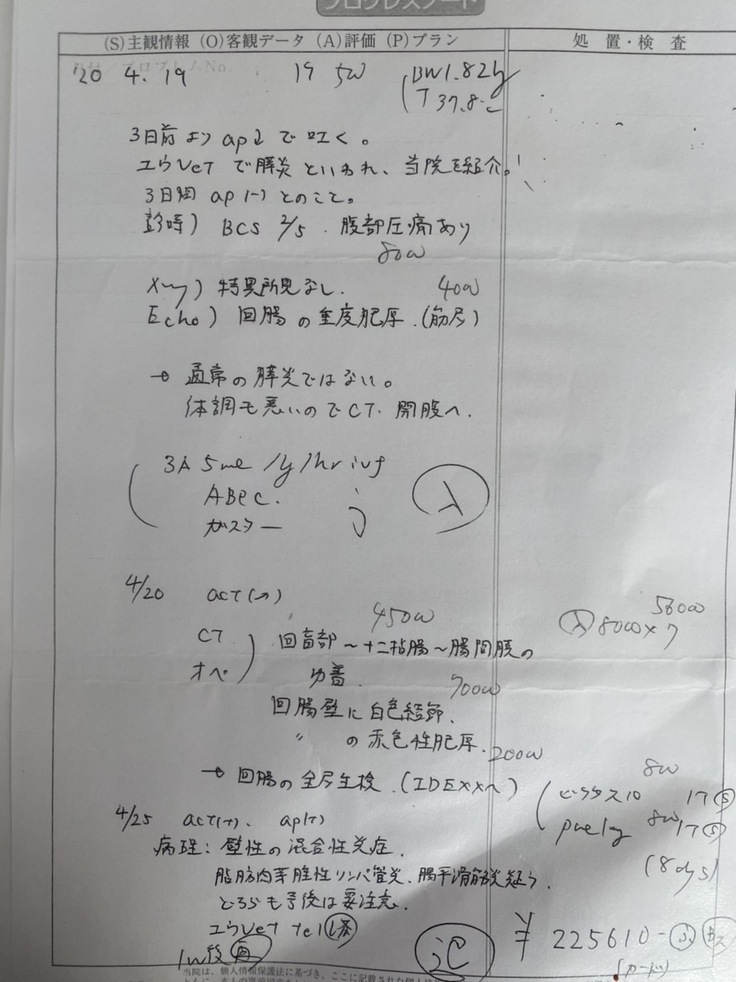 プログレスノート
(S)主観情報 (O)客観データ (A)評価 (P)プラン
処 置・検 査
'20 4. 19 19 5w BW1.82kg
T 37.8℃
3日前より ap↓ で吐く。
ユウVet で膵炎といわれ、当院を紹介。
3日間 ap(-) とのこと。
診時) BCS 2/5 . 腹部圧痛あり
8000
X-ray) 特異所見なし. 4000
Echo) 回腸の重度肥厚.(筋層)
→ 通常の膵炎ではない。
体調も悪いのでCT. 開腹へ.
3A 5ml /kg/hr ivf
ABPC.
ガスター
入
4/20 act(→)
45000
CT
オペ
回盲部〜十二指腸〜腸間膜の
ゆ着.
70000
回腸壁に白色結節.
〃 の赤色性肥厚.
20000
→ 回腸の全層生検.(IDEXXへ)
56000
入 8000×7
800
ビクタス10 1T
pre 1mg 800 1T
(8dys)
4/25 act(+). ap(+)
病理: 壁性の混合性炎症.
脂肪肉芽腫性リンパ管炎. 腸平滑筋炎疑う.
どちらも予後は要注意.
ユウVet tel 済
1w後 再
¥225610-
(カード)
当院は、個人情報保護法に基づき、ここに記載された個人